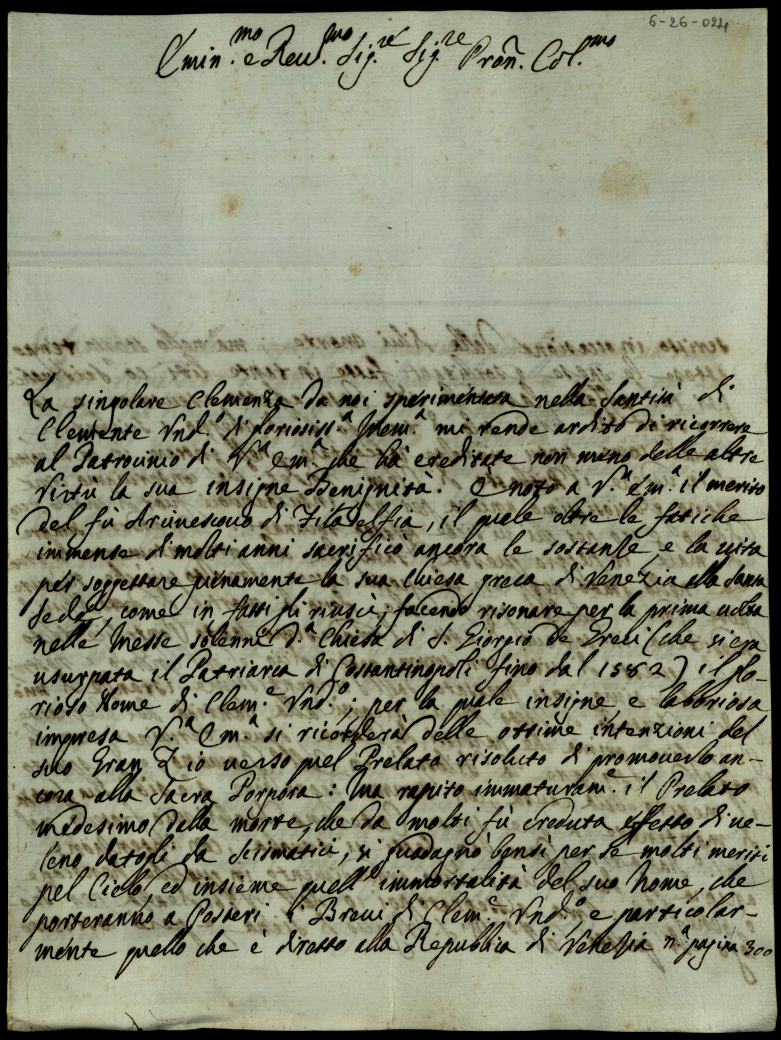 6-26-024
Emin.mo e Reu.mo Sig.re Sig.re Pron̄. Col.mo
La singolare Clemenza da noi sperimentata nella Santità di
Clemente Und.o di Gloriosiss.a Mem.a mi rende ardito di ricorrere
al Patrocinio di V.a Em.a che hà ereditate non meno delle altre
virtù la sua insigne Benignità. È noto a V.a Em.a il merito
del fù Arcivescovo di Filadelfia, il quale oltre le fatiche
immense di molti anni sacrificò ancora le sostanze, e la vita
per soggettare pienamente la sua Chiesa greca di Venezia alla Santa
Sede, come in fatti gli riuscì; facendo risonare per la prima volta
nelle Messe solenni d.a Chiesa di S. Giorgio de Greci (che si era
usurpata il Patriarca di Costantinopoli fino dal 1582) il glo-
rioso Nome di Clem.e Und.o; per la quale insigne, e laboriosa
impresa V.a Em.a si ricorderà delle ottime intenzioni del
suo Gran Zio verso quel Prelato risoluto di promoverlo an-
cora alla Sacra Porpora: Ma rapito immaturam.e il Prelato
medesimo dalla morte, che da molti fù creduta effetto di ve-
leno datogli da Scismatici, si guadagnò bensì per se molti meriti
pel Cielo, ed insieme quell'immortalità del suo Nome, che
porteranno a Posteri i Brevi di Clem.e Und.o, e particolar-
mente quello che è diretto alla Repubblica di Venezia n.a pagina 300